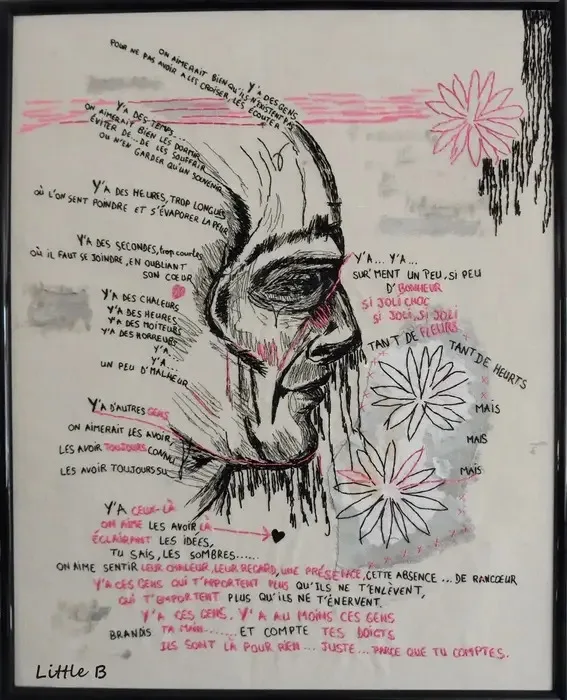 Y'A DES GENS
ON AIMERAIT BIEN QU'ILS N'EXISTENT PAS
POUR NE PAS AVOIR A LES CROISER, LES ÉCOUTER
Y'A DES TEMPS...
ON AIMERAIT BIEN LES DORMIR
ÉVITER DE...DE LES SOUFFRIR
OU N'EN GARDER QU'UN SOUVENIR
Y'A DES HEURES, TROP LONGUES
OÙ L'ON SENT POINDRE ET S'ÉVAPORER LA PEUR
Y'A DES SECONDES, trop courtes
OÙ IL FAUT SE JOINDRE, EN OUBLIANT
SON CŒUR
Y'A DES CHALEURS
Y'A DES HEURES
Y'A DES MOITEURS
Y'A DES HORREURS
Y'A...
Y'A...
UN PEU D'MALHEUR
Y'A... Y'A...
SUR'MENT UN PEU, SI PEU
D'BONHEUR
SI JOLI CHOC
SI JOLI, SI JOLI
TANT DE FLEURS
TANT DE HEURTS
MAIS
MAIS
MAIS
Y'A D'AUTRES GENS
ON AIMERAIT LES AVOIR
LES AVOIR TOUJOURS CONNU
LES AVOIR TOUJOURS SU
Y'A CEUX-LÀ
ON AIME LES AVOIR LÀ
ÉCLAIRANT LES IDÉES,
TU SAIS, LES SOMBRES......
ON AIME SENTIR LEUR CHALEUR, LEUR REGARD, UNE PRÉSENCE, CETTE ABSENCE ... DE RANCOEUR
Y'A CES GENS QUI T'APPORTENT PLUS QU'ILS NE T'ENLÈVENT,
QUI T'EMPORTENT PLUS QU'ILS NE T'ÉNERVENT.
Y'A CES GENS, Y'A AU MOINS CES GENS
BRANDIS TA MAIN....... ET COMPTE TES DOIGTS
ILS SONT LÀ POUR RIEN ... JUSTE... PARCE QUE TU COMPTES.
Little B